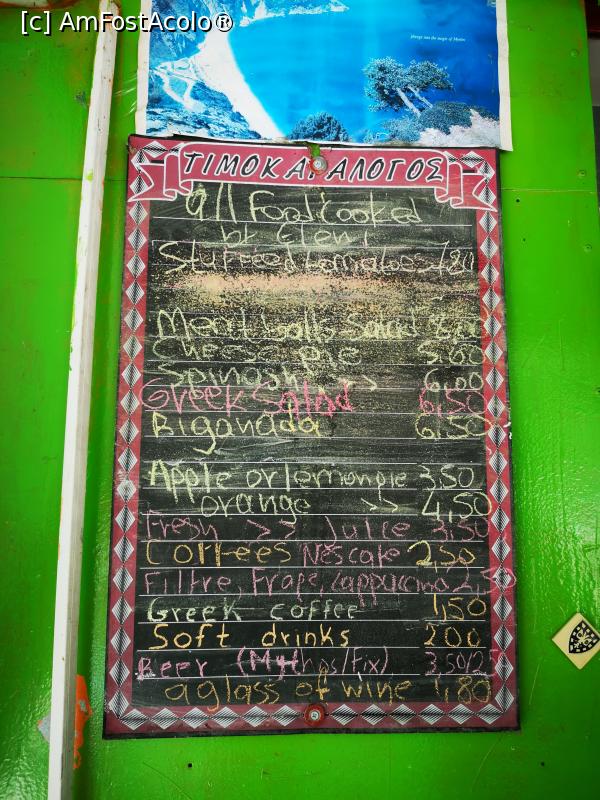 [c] AmFostAcolo®
ΤΙΜΟΚΑΤΑΛΟΓΟΣ
all food cooked
by Eleni
Stuffed tomatoes 7,80
Meat balls Salad
Cheese pie 5.00
Spinash >> 6,00
Greek Salad 6,50
Riganada 6,50
Apple or lemon pie 3,50
orange >> 4,50
Fresh >> Juice 3,50
Coffees Nescafe 2,50
Filtre, Frape, Cappuccino 2,50
Greek coffee 1,50
Soft drinks 2.00
Beer (Mythos/Fix) 3.50/2,50
a glass of wine 1,80